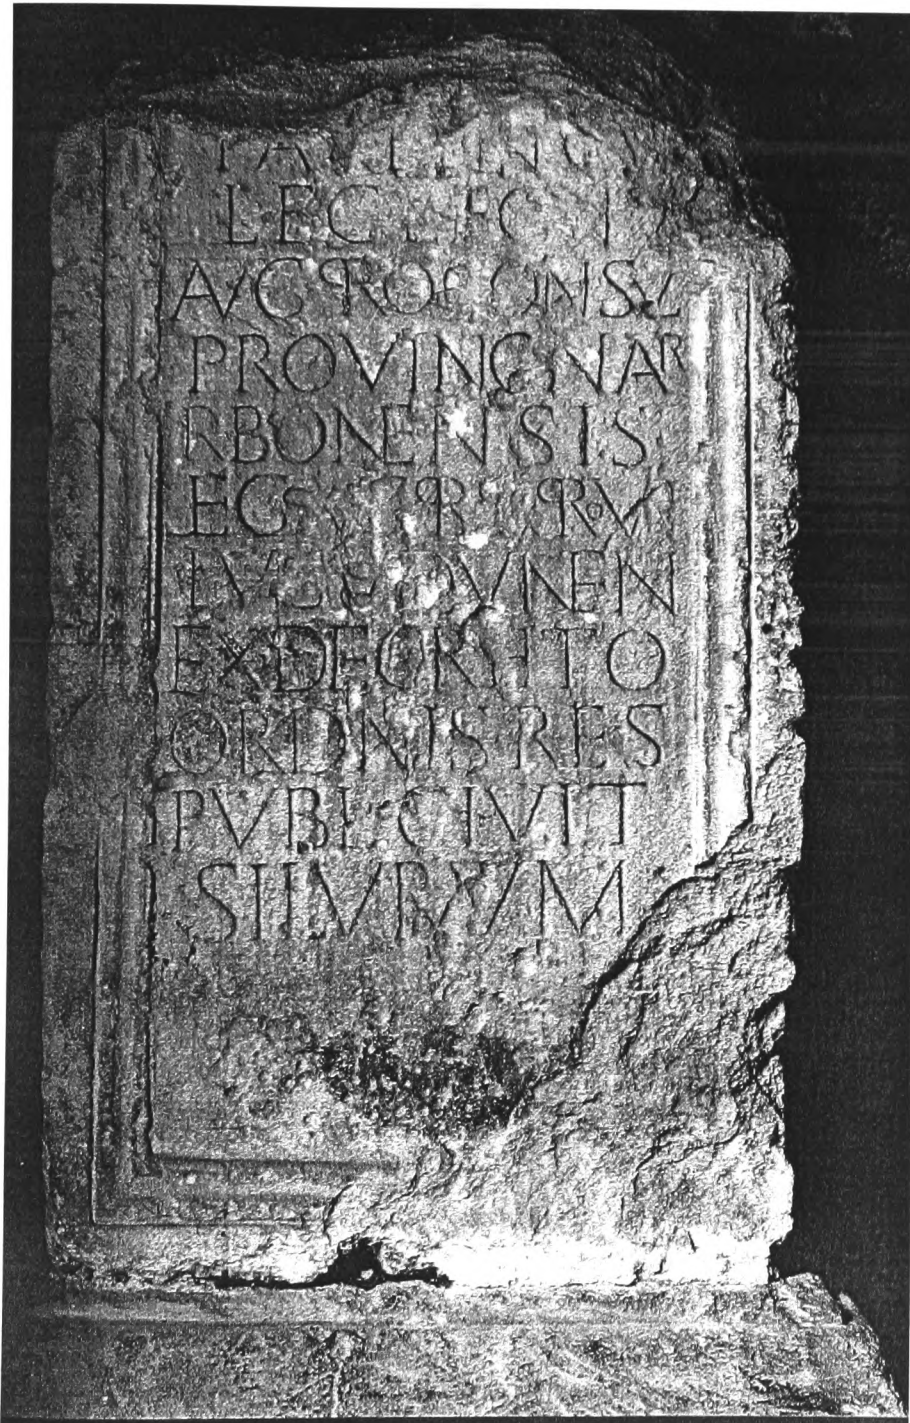 PAVLINO
LEG LEG II
AVG PROCONSVL
PROVINC NAR
RBONENSIS
LEG PR PR
LVGVDVNEN
EX DECRETO
ORDINIS RES
PVBL CIVIT
SILVRVM